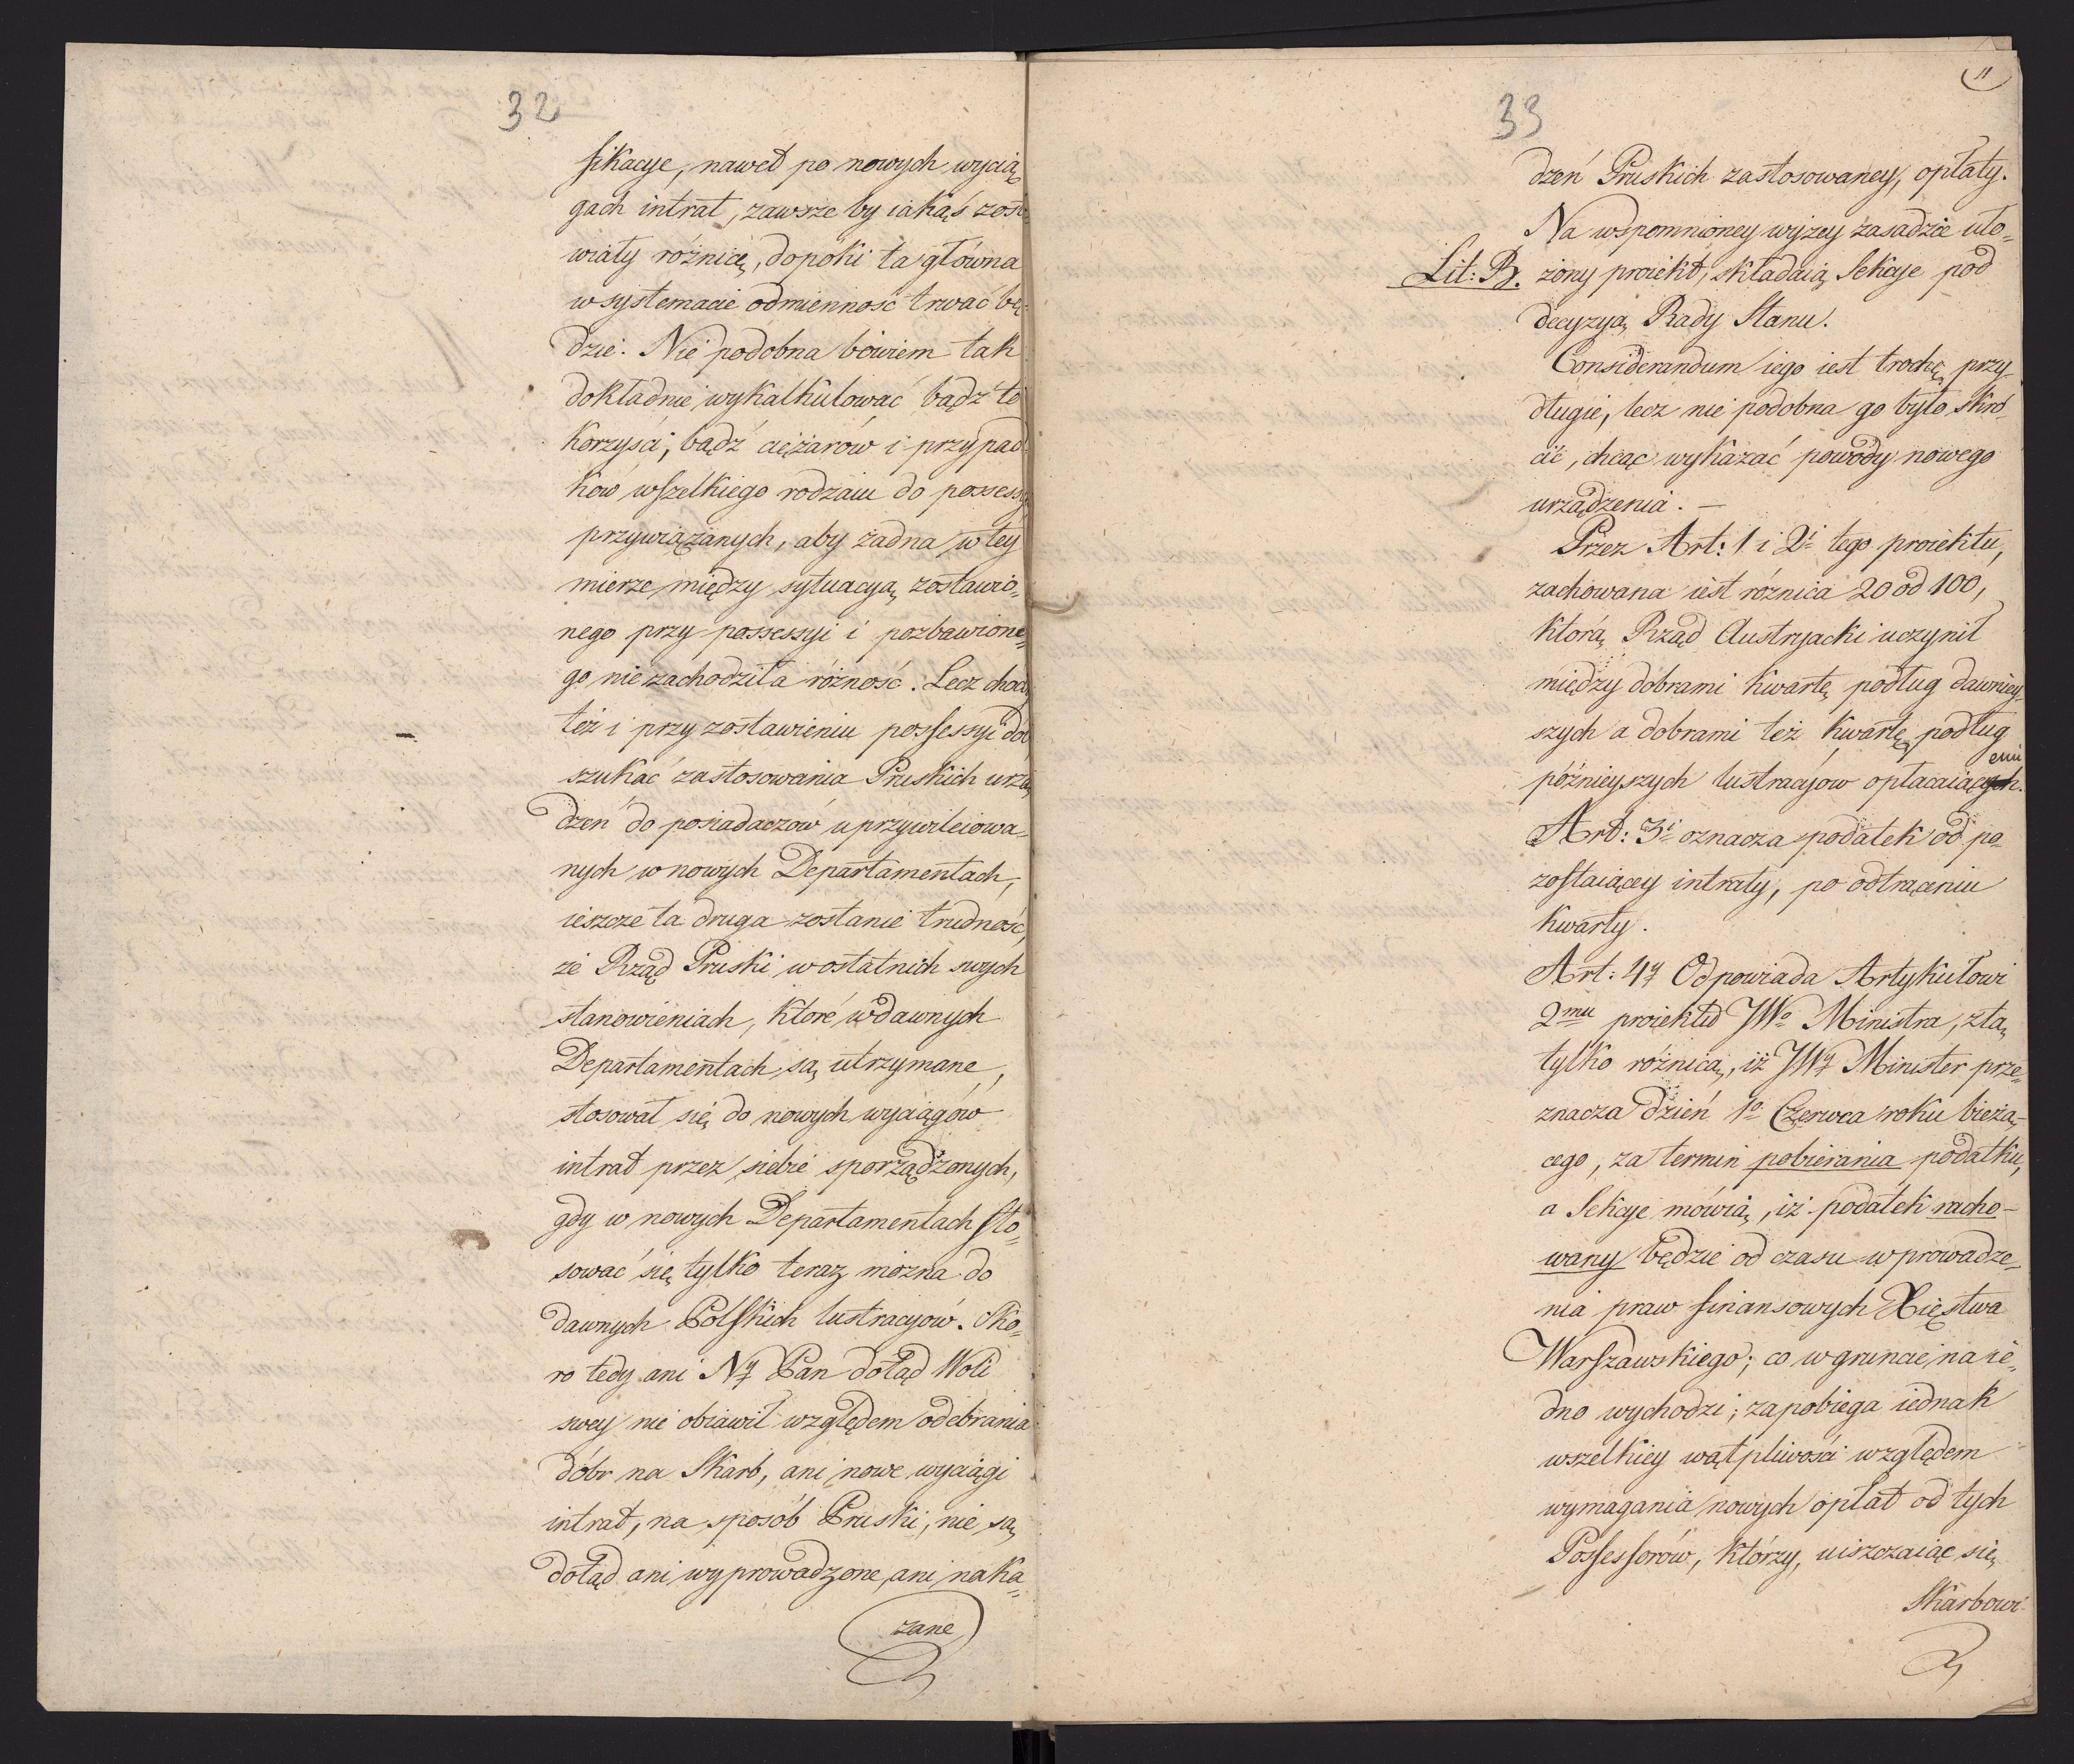 32
fikacye, nawet po nowych wycią
gach intrat, zawsze by iakąś zosta
wiały różnicę, dopóki ta główna
w systemacie odmienność trwać bę=
dzie. Nie podobna bowiem tak
dokładnie wykalkulować bądź to
korzyści, bądź ciężarów i przypad
ków wszelkiego rodzaiu do possessyi
przywiązanych, aby żadna w tey
mierze między sytuacyą zostawio=
nego przy possessyi i pozbawione=
go nie zachodziła różność. Lecz choć
też i przy zostawieniu possessyi dób
szukać zastosowania Pruskich urzą
dzeń do posiadaczów uprzywileiowa=
nych w nowych Departamentach,
ieszcze ta druga zostanie trudność,
że Rząd Pruski w ostatnich swych
stanowieniach, które w dawnych
Departamentach są utrzymane,
stosował się do nowych wyciągów
intrat przez siebie sporządzonych,
gdy w nowych Departamentach sto=
sować się tylko teraz można do
dawnych Polskich lustracyów. Sko=
ro tedy ani Ny Pan dotąd Woli
swey nie obiawił względem odebrania
dóbr na Skarb, ani nowe wyciągi
intrat, na sposób Pruski, nie są
dotąd ani wyprowadzone ani naka=
zane
11
33
dzeń Pruskich zastosowaney, opłaty.
Na wspomnioney wyżey zasadzie uło=
Lit: B. żony proiekt, składaią Sekcye pod
decyzyą Rady Stanu.
Considerandum iego iest trochę przy=
długie, lecz nie podobna go było skró=
cić, chcąc wykazać powody nowego
urządzenia. —
Przez Art: 1 i 2i tego proiektu,
zachowana iest różnica 20 od 100,
którą Rząd Austryacki uczynił
między dobrami kwartę podług dawniey=
szych a dobrami też kwartę podług
emi
późnieyszych lustracyów opłacaiących.
Art: 3i oznacza podatek od po=
zostaiącey intraty, po odtrąceniu
kwarty.
Art: 4y Odpowiada Artykułowi
2mu proiektu JWo Ministra, z tą
tylko różnicą, iż JWy Minister prze=
znacza dzień 1o Czerwca roku bieżą=
cego, za termin pobierania podatku,
a Sekcye mówią, iż podatek racho=
wany będzie od czasu wprowadze=
nia praw finansowych Xięstwa
Warszawskiego; co w gruncie na ie=
dno wychodzi; zapobiega iednak
wszelkiey wątpliwości względem
wymagania nowych opłat od tych
Possessorów, którzy, uiszczaiąc się
Skarbowi